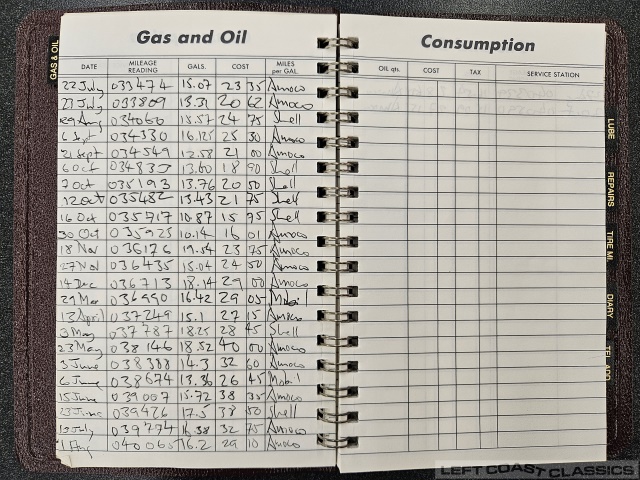 Gas and Oil
Consumption
GAS & OIL
DATE MILEAGE READING GALS. COST MILES per GAL.
OIL qts. COST TAX SERVICE STATION
22 July 033474 15.07 23 35 Amoco
27 July 033809 15.31 20 62 Amoco
29 Aug 034060 18.57 24 75 Shell
6 Sept 034330 16.125 25 30 Amoco
21 Sept 034549 12.58 21 00 Amoco
6 Oct 13.60 18 90 Shell
7 Oct 035193 13.76 20 50 Shell
12 Oct 035482 13.43 21 75 Shell
16 Oct 035717 10.87 15 95 Shell
30 Oct 035925 10.14 16 01 Amoco
18 Nov 036176 19.54 23 75 Amoco
27 Nov 036435 15.04 24 50 Amoco
14 Dec 036713 18.14 29 00 Amoco
29 Mar 036990 16.42 29 05 Mobil
13 April 037249 15.1 27 15 Amoco
3 May 037787 18.25 28 45 Shell
23 May 038146 18.52 40 00 Amoco
3 June 038388 14.3 32 60 Amoco
6 June 038674 13.36 26 45 Mobil
15 June 039007 15.72 38 35 Amoco
23 June 039426 17.5 38 50 Shell
12 July 039774 16.38 32 75 Amoco
1 Aug 040065 16.2 29 10 Amoco
LUBE
REPAIRS
TIRE MI.
DIARY
TEL. ADD.
LEFT COAST CLASSICS